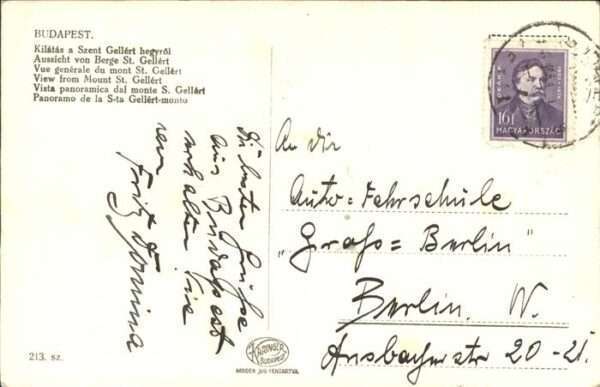 BUDAPEST.
Kilátás a Szent Gellért hegyről
Aussicht von Berge St. Gellért
Vue générale du mont St. Gellért
View from Mount St. Gellért
Vista panoramica dal monte S. Gellért
Panoramo de la S-ta Gellért-monto
Die besten Grüße
aus Budapest
erhalten Sie
von
Fritz
DEÁK F.
16f
MAGYARORSZÁG
An die
Auto=Fahrschule
"Groß=Berlin"
Berlin. W.
Ansbacherstr 20-21.
213. sz.
BARINGER
BUDAPEST
MINDEN JOG FENTARTVA.